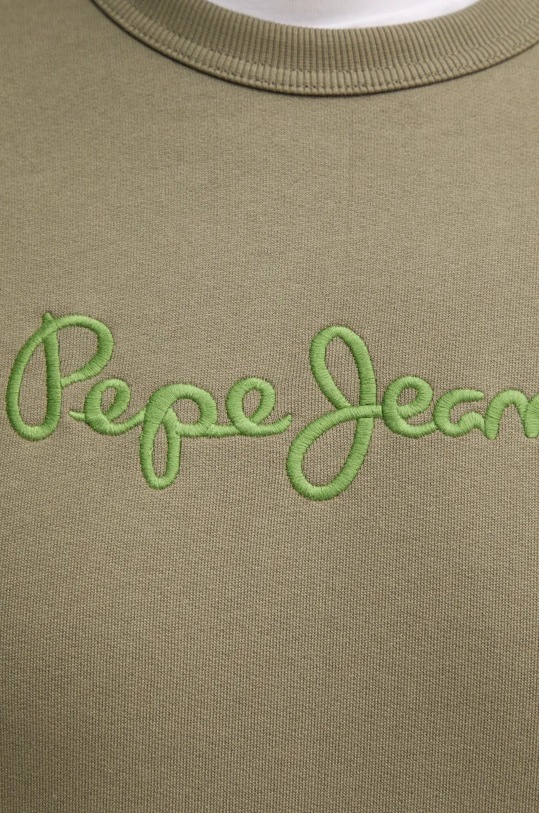 Pepe Jean